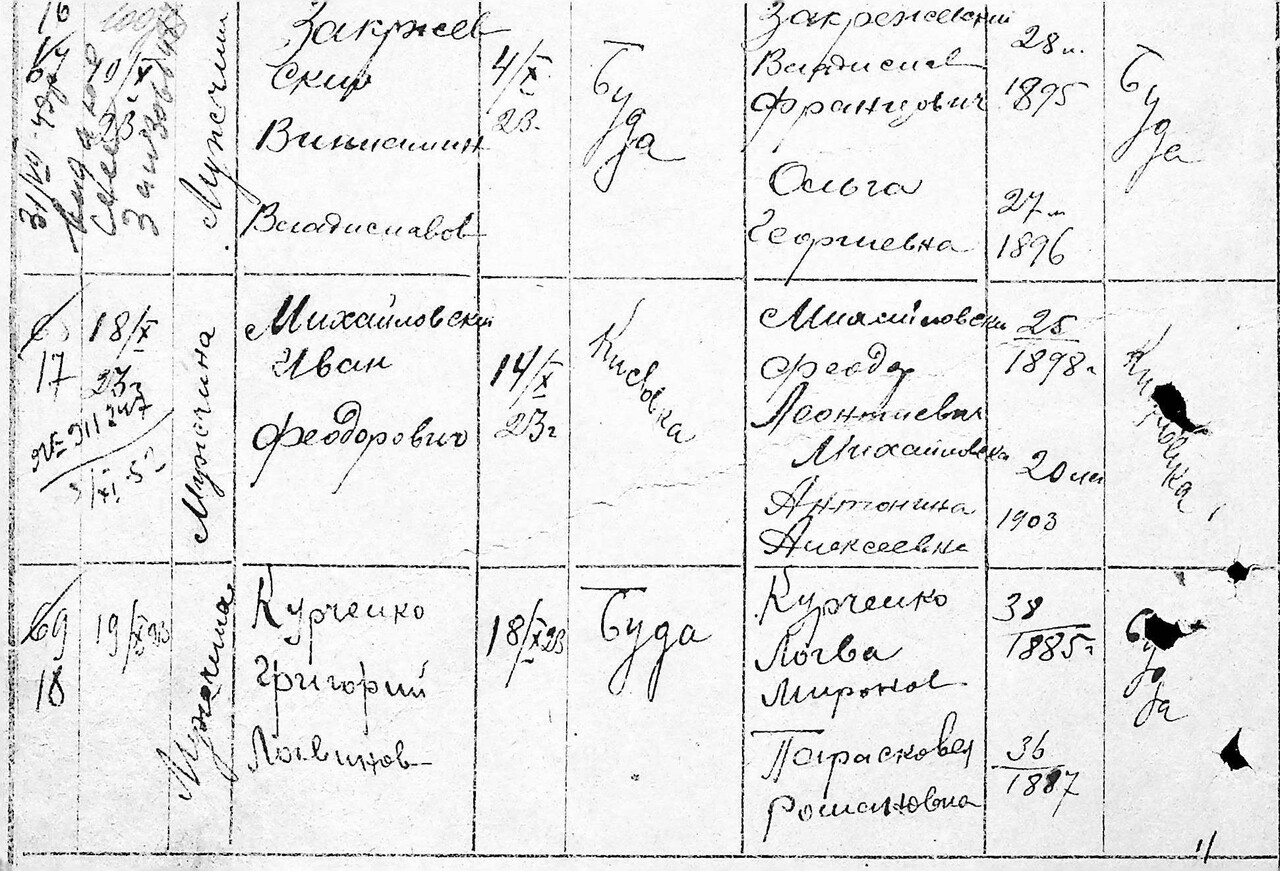 16
67
10/X
23
Мужчина
Закржев
ский
Виниамин
Владиславов
4/X
23.
Буда
Закрежевский
Владислав
Францович
28 л.
1895
Ольга
Георгиевна
27 л
1896
Буда
17
18/X
23г
№ 311247
Мужчина
Михайловский
Иван
Феодорович
14/X
23г
Киевка
Михайловски
Феодор
Леонтиевич
25
1898г
Михайловска
Антонина
Алексеевна
20 лет
1903
69
18
19/X 23
Мужчина
Курченко
Григорий
Логвинов
18/X 23
Буда
Курченко
Логва
Миронов
38
1885г
Парасковея
Романовна
36
1887
Буда